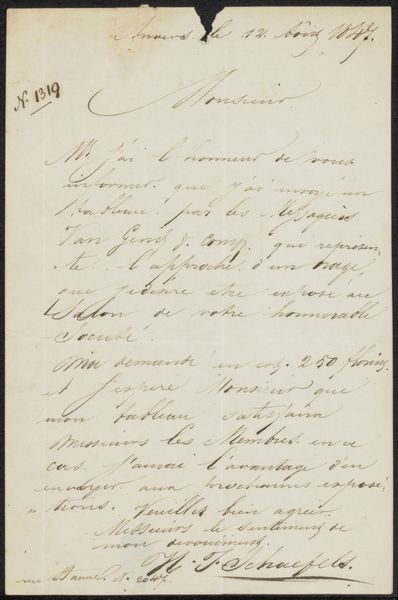 Anvers le 12 Août 1847.
N. 1319
Monsieur
Mr j'ai l'honneur de vous
informer que j'ai envoyé un
tableau par les Messageries
Van Gend & comp. qui représen-
te l'approche d'un orage,
que je désire etre exposé au
Salon de votre honnorable
Societé.
demande en est 250 florins
et J'espere Monsieur que
mon tableau satisfaira
Messieurs les Membres en ce
cas J'aurai l'avantage d'en
envoyer aux prochaines exposi-
tions. Veuillez bien agréer
Messieurs le sentiment de
mon devouement.
H. F. Schaefels.
rue